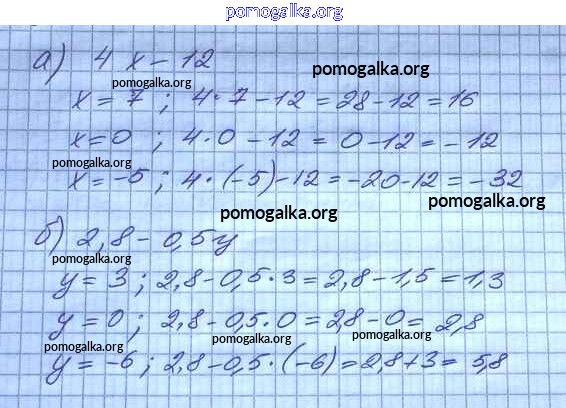 pomogalka.org
а) 4x - 12
pomogalka.org
pomogalka.org
x = 7 ; 4 · 7 - 12 = 28 - 12 = 16
x = 0 ; 4 · 0 - 12 = 0 - 12 = - 12
pomogalka.org
x = -5 ; 4 · (-5) - 12 = -20 - 12 = - 32
pomogalka.org
pomogalka.org
б) 2,8 - 0,5y
pomogalka.org
y = 3 ; 2,8 - 0,5 · 3 = 2,8 - 1,5 = 1,3
y = 0 ; 2,8 - 0,5 · 0 = 2,8 - 0 = 2,8
pomogalka.org
pomogalka.org
pomogalka.org
y = -6 ; 2,8 - 0,5 · (-6) = 2,8 + 3 = 5,8